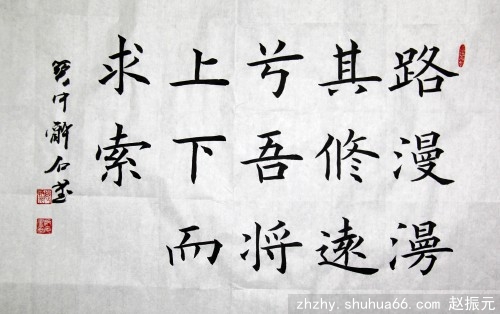 路漫漫
其修遠
兮吾将
上下而
求索
zhzhy.shuhua66.com 赵振元